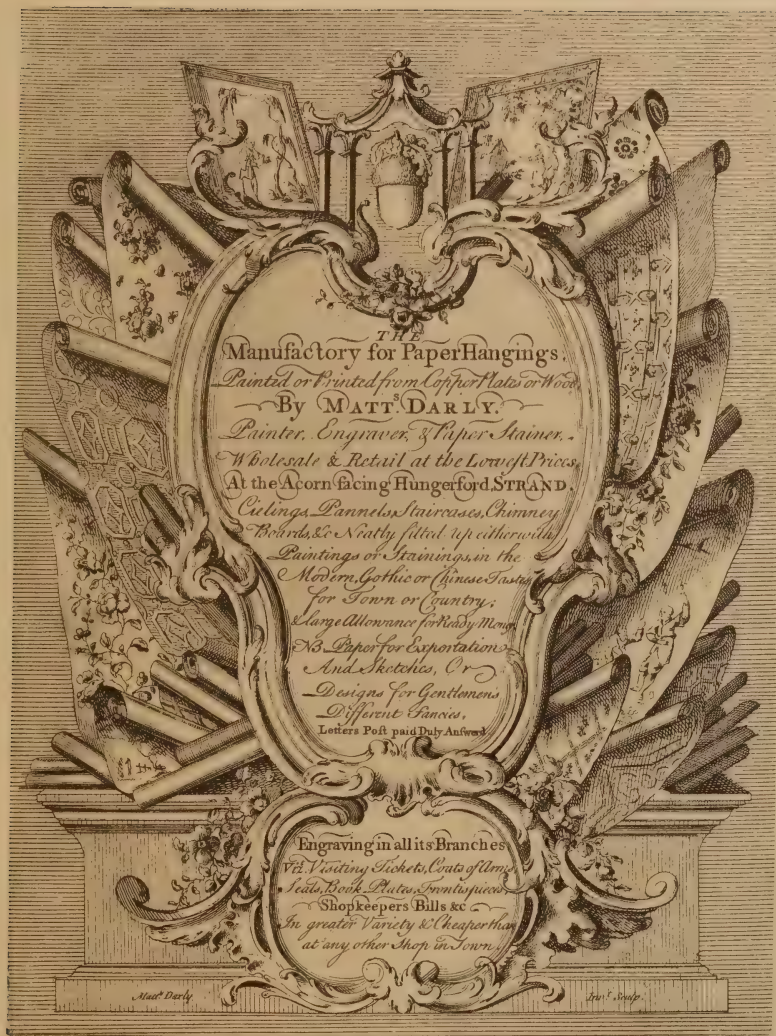 THE
Manufactory for Paper Hangings.
Painted or Printed from Copper Plates or Wood.
By MATTS. DARLY.
Painter, Engraver, & Paper Stainer.
Wholesale & Retail at the Lowest Prices.
At the Acorn facing Hungerford, STRAND.
Cielings, Pannels, Staircases, Chimney
Boards, &c Neatly fitted up either with
Paintings or Stainings, in the
Modern, Gothic or Chinese Tastes
for Town or Country;
& large Allowance for Ready Money
NB. Paper for Exportation
And Sketches, Or
Designs for Gentlemens
Different Fancies.
Letters Post paid Duly Answerd
Engraving in all its Branches
Vizt. Visiting Tickets, Coats of Arms
Seals, Book Plates, Frontispieces
Shopkeepers Bills &c
In greater Variety & Cheaper than
at any other Shop in Town.
Matts. Darly
Invt. Sculp.